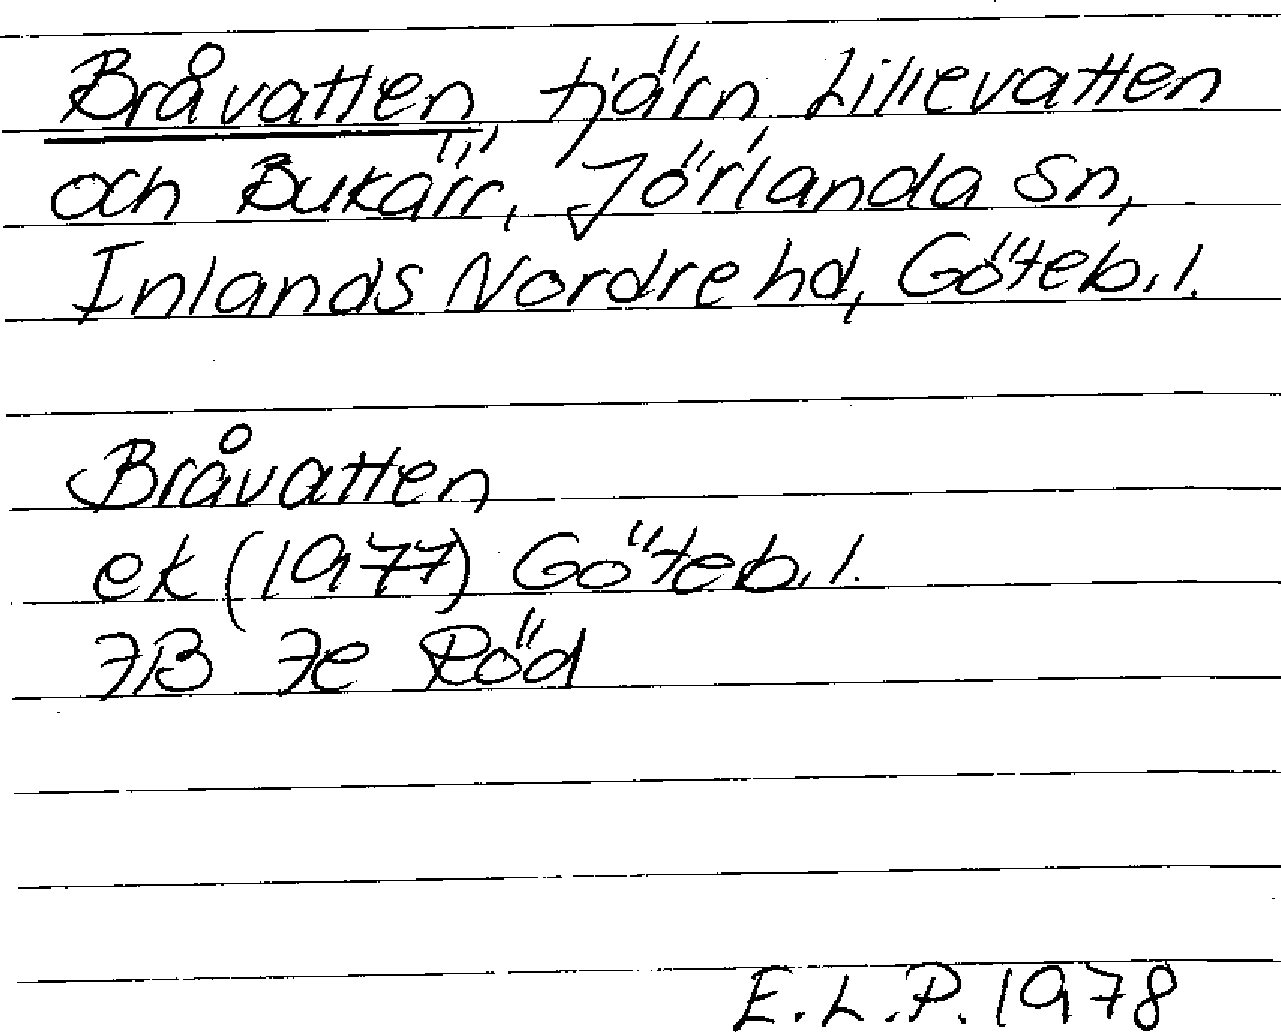 Bråvatten, tjärn, Lillevatten
och Bukärr, Jörlanda sn,
Inlands Nordre hd, Göteb. l.
Bråvatten
ek (1977) Göteb. l.
7B 7e Röd
E.L.P. 1978